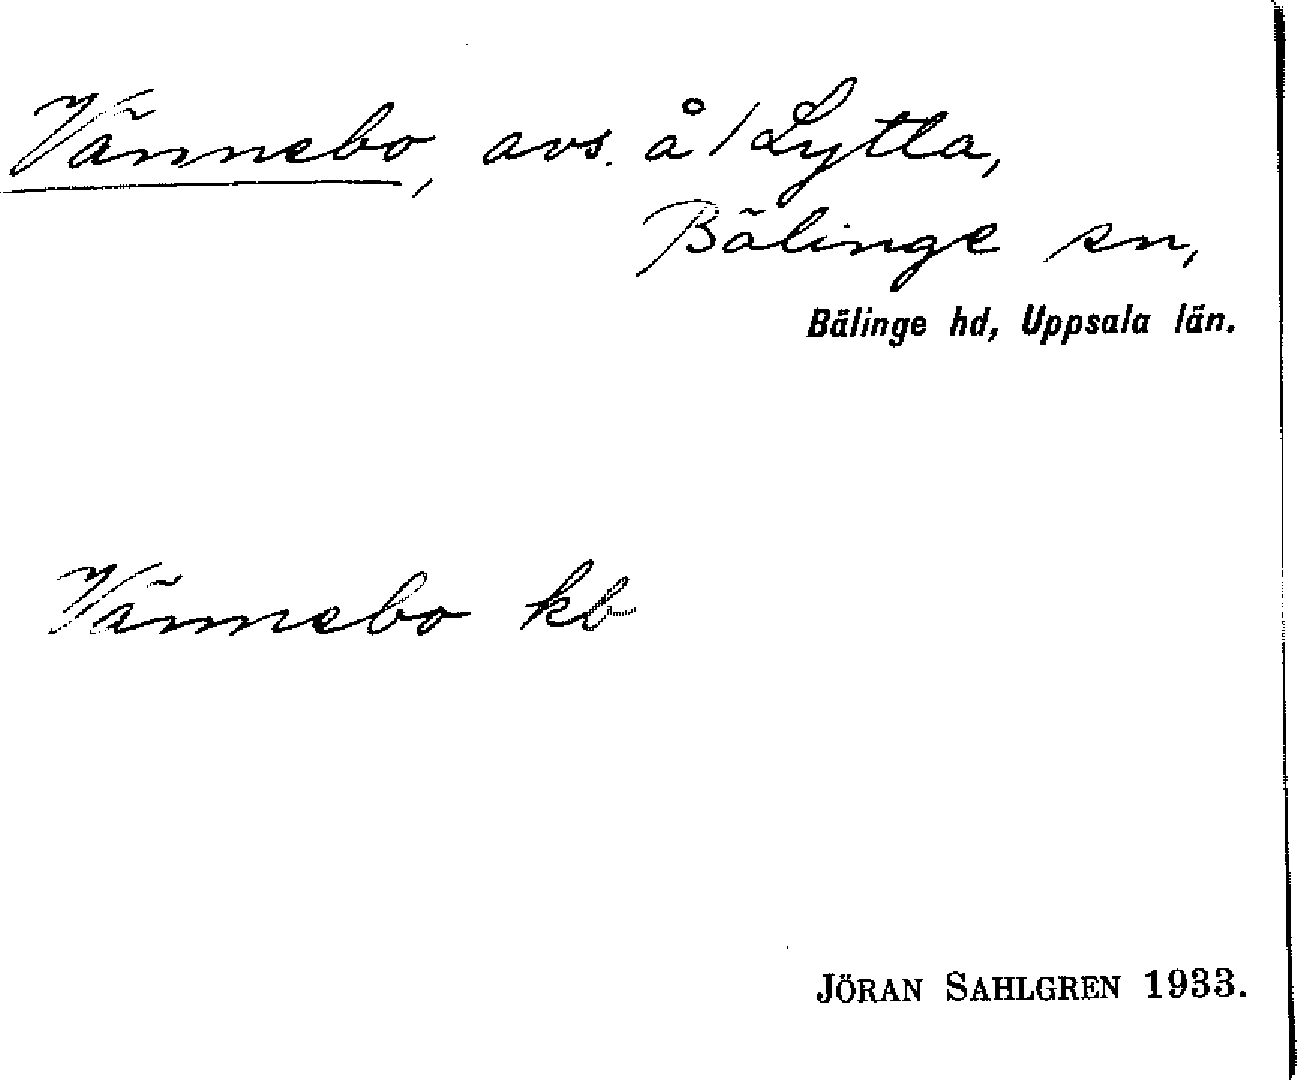 Vännebo, avs. å / Lytla,
Bälinge sn,
Bälinge hd, Uppsala län.
Vännebo kb
JÖRAN SAHLGREN 1933.